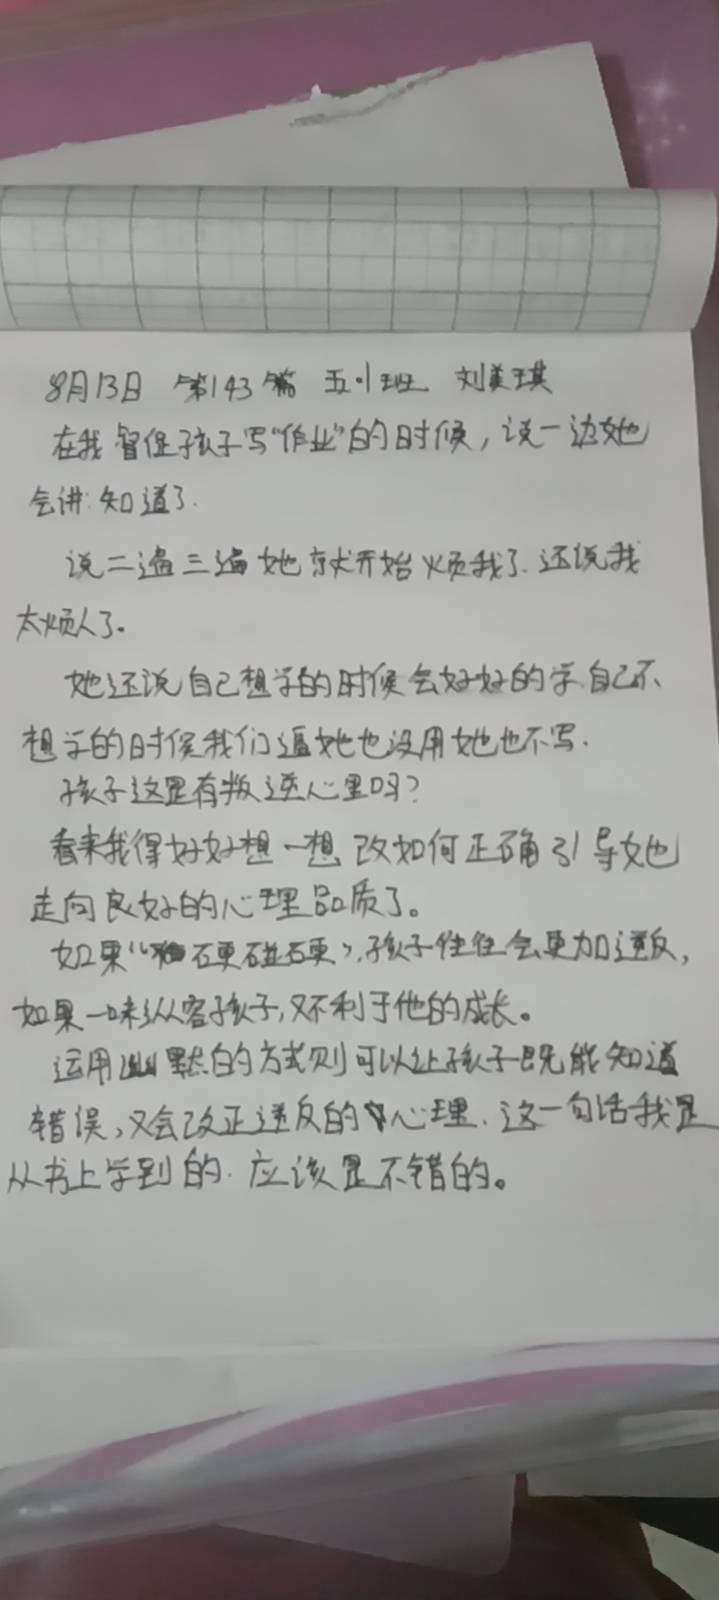 8月13日 第143篇 五·1班 刘美琪
在我督促孩子写“作业”的时候，说一边她
会讲：知道了．
说二遍三遍她就开始烦我了．还说我
太烦人了。
她还说自己想学的时候会好好的学．自己不
想学的时候我们逼她也没用她也不写．
孩子这是有叛逆心里吗？
看来我得好好想一想 改如何正确引导她
走向良好的心理品质了。
如果“硬碰硬”，孩子往往会更加逆反，
如果一味纵容孩子，又不利于他的成长。
运用幽默的方式则可以让孩子既能知道
错误，又会改正逆反的心理．这一句话我是
从书上学到的．应该是不错的。